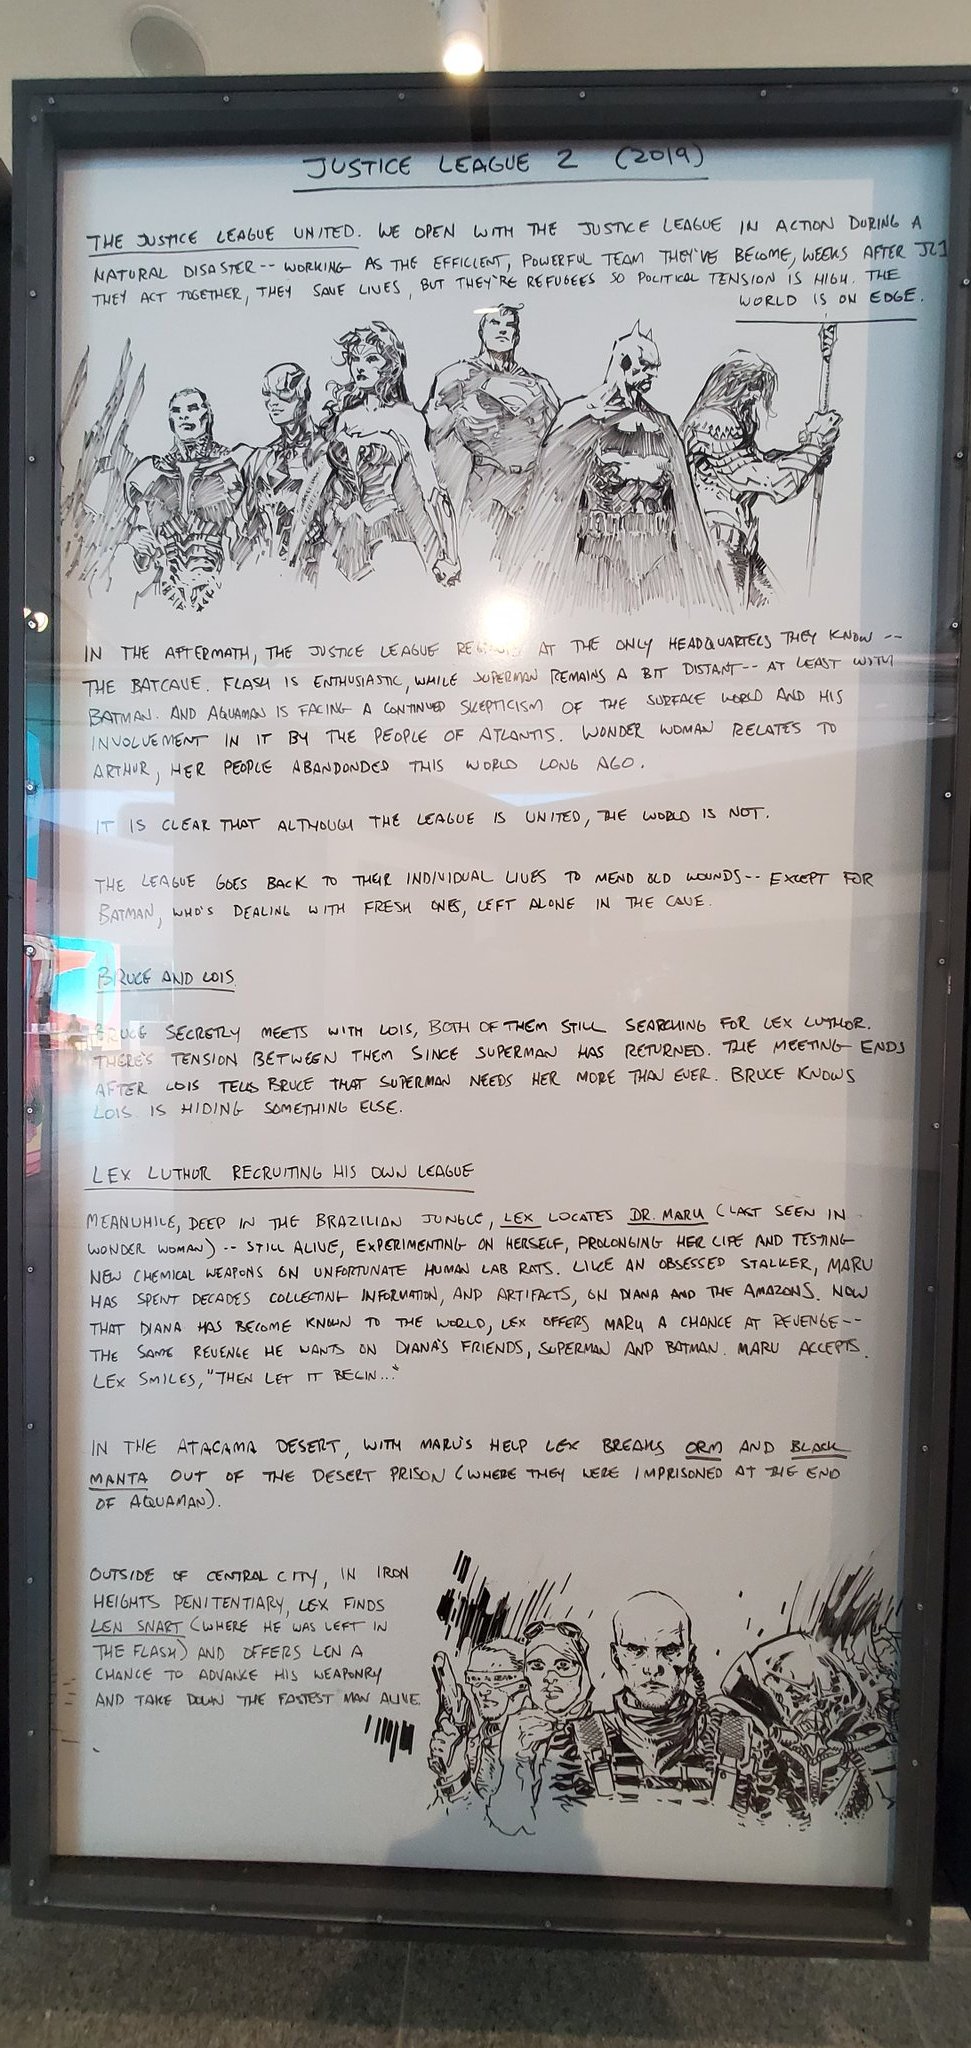 JUSTICE LEAGUE 2 (2019)
THE JUSTICE LEAGUE UNITED. WE OPEN WITH THE JUSTICE LEAGUE IN ACTION DURING A
NATURAL DISASTER-- WORKING AS THE EFFICIENT, POWERFUL TEAM THEY'VE BECOME, WEEKS AFTER JL1
THEY ACT TOGETHER, THEY SAVE LIVES, BUT THEY'RE REFUGEES SO POLITICAL TENSION IS HIGH. THE
WORLD IS ON EDGE.
IN THE AFTERMATH, THE JUSTICE LEAGUE AT THE ONLY HEADQUARTERS THEY KNOW--
THE BATCAVE. FLASH IS ENTHUSIASTIC, WHILE SUPERMAN REMAINS A BIT DISTANT-- AT LEAST WITH
BATMAN. AND AQUAMAN IS FACING A CONTINUED SKEPTICISM OF THE SURFACE WORLD AND HIS
INVOLVEMENT IN IT BY THE PEOPLE OF ATLANTIS. WONDER WOMAN RELATES TO
ARTHUR, HER PEOPLE ABANDONDED THIS WORLD LONG AGO.
IT IS CLEAR THAT ALTHOUGH THE LEAGUE IS UNITED, THE WORLD IS NOT.
THE LEAGUE GOES BACK TO THEIR INDIVIDUAL LIVES TO MEND OLD WOUNDS-- EXCEPT FOR
BATMAN, WHO'S DEALING WITH FRESH ONES, LEFT ALONE IN THE CAVE.
BRUCE AND LOIS
BRUCE SECRETLY MEETS WITH LOIS, BOTH OF THEM STILL SEARCHING FOR LEX LUTHOR.
THERE'S TENSION BETWEEN THEM SINCE SUPERMAN HAS RETURNED. THE MEETING ENDS
AFTER LOIS TELLS BRUCE THAT SUPERMAN NEEDS HER MORE THAN EVER. BRUCE KNOWS
LOIS IS HIDING SOMETHING ELSE.
LEX LUTHOR RECRUITING HIS OWN LEAGUE
MEANWHILE, DEEP IN THE BRAZILIAN JUNGLE, LEX LOCATES DR. MARU (LAST SEEN IN
WONDER WOMAN)-- STILL ALIVE, EXPERIMENTING ON HERSELF, PROLONGING HER LIFE AND TESTING
NEW CHEMICAL WEAPONS ON UNFORTUNATE HUMAN LAB RATS. LIKE AN OBSESSED STALKER, MARU
HAS SPENT DECADES COLLECTING INFORMATION, AND ARTIFACTS, ON DIANA AND THE AMAZONS. NOW
THAT DIANA HAS BECOME KNOWN TO THE WORLD, LEX OFFERS MARU A CHANCE AT REVENGE--
THE SAME REVENGE HE WANTS ON DIANA'S FRIENDS, SUPERMAN AND BATMAN. MARU ACCEPTS.
LEX SMILES, "THEN LET IT BEGIN..."
IN THE ATACAMA DESERT, WITH MARU'S HELP LEX BREAKS ORM AND BLACK
MANTA OUT OF THE DESERT PRISON (WHERE THEY WERE IMPRISONED AT THE END
OF AQUAMAN).
OUTSIDE OF CENTRAL CITY, IN IRON
HEIGHTS PENITENTIARY, LEX FINDS
LEN SNART (WHERE HE WAS LEFT IN
THE FLASH) AND OFFERS LEN A
CHANCE TO ADVANCE HIS WEAPONRY
AND TAKE DOWN THE FASTEST MAN ALIVE.